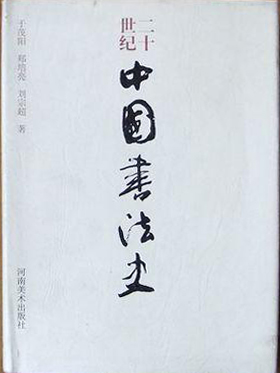 二十
世纪
中國書法史
于茂阳 郑培亮 刘宗超 著
河南美术出版社